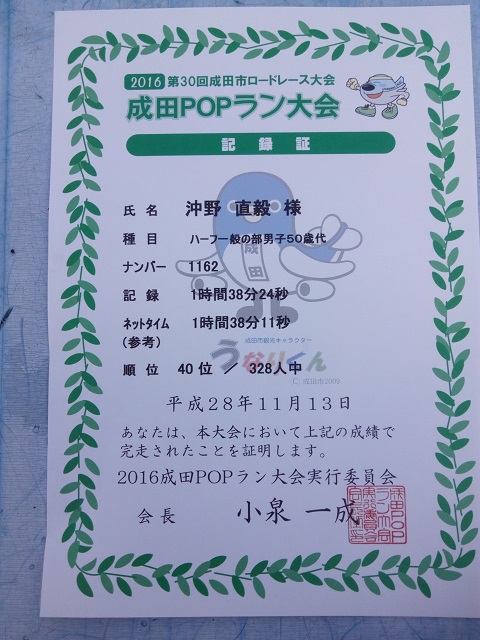 2016 第30回成田市ロードレース大会
成田POPラン大会
記録証
氏名 沖野 直毅 様
種目 ハーフ一般の部男子50歳代
成田
ナンバー 1162
記録 1時間38分24秒
ネットタイム 1時間38分11秒
(参考)
成田市観光キャラクター
うなりくん
順位 40位 / 328人中
C 成田市2009
平成28年11月13日
あなたは、本大会において上記の成績で
完走されたことを証明します。
2016成田POPラン大会実行委員会
会長 小泉 一成